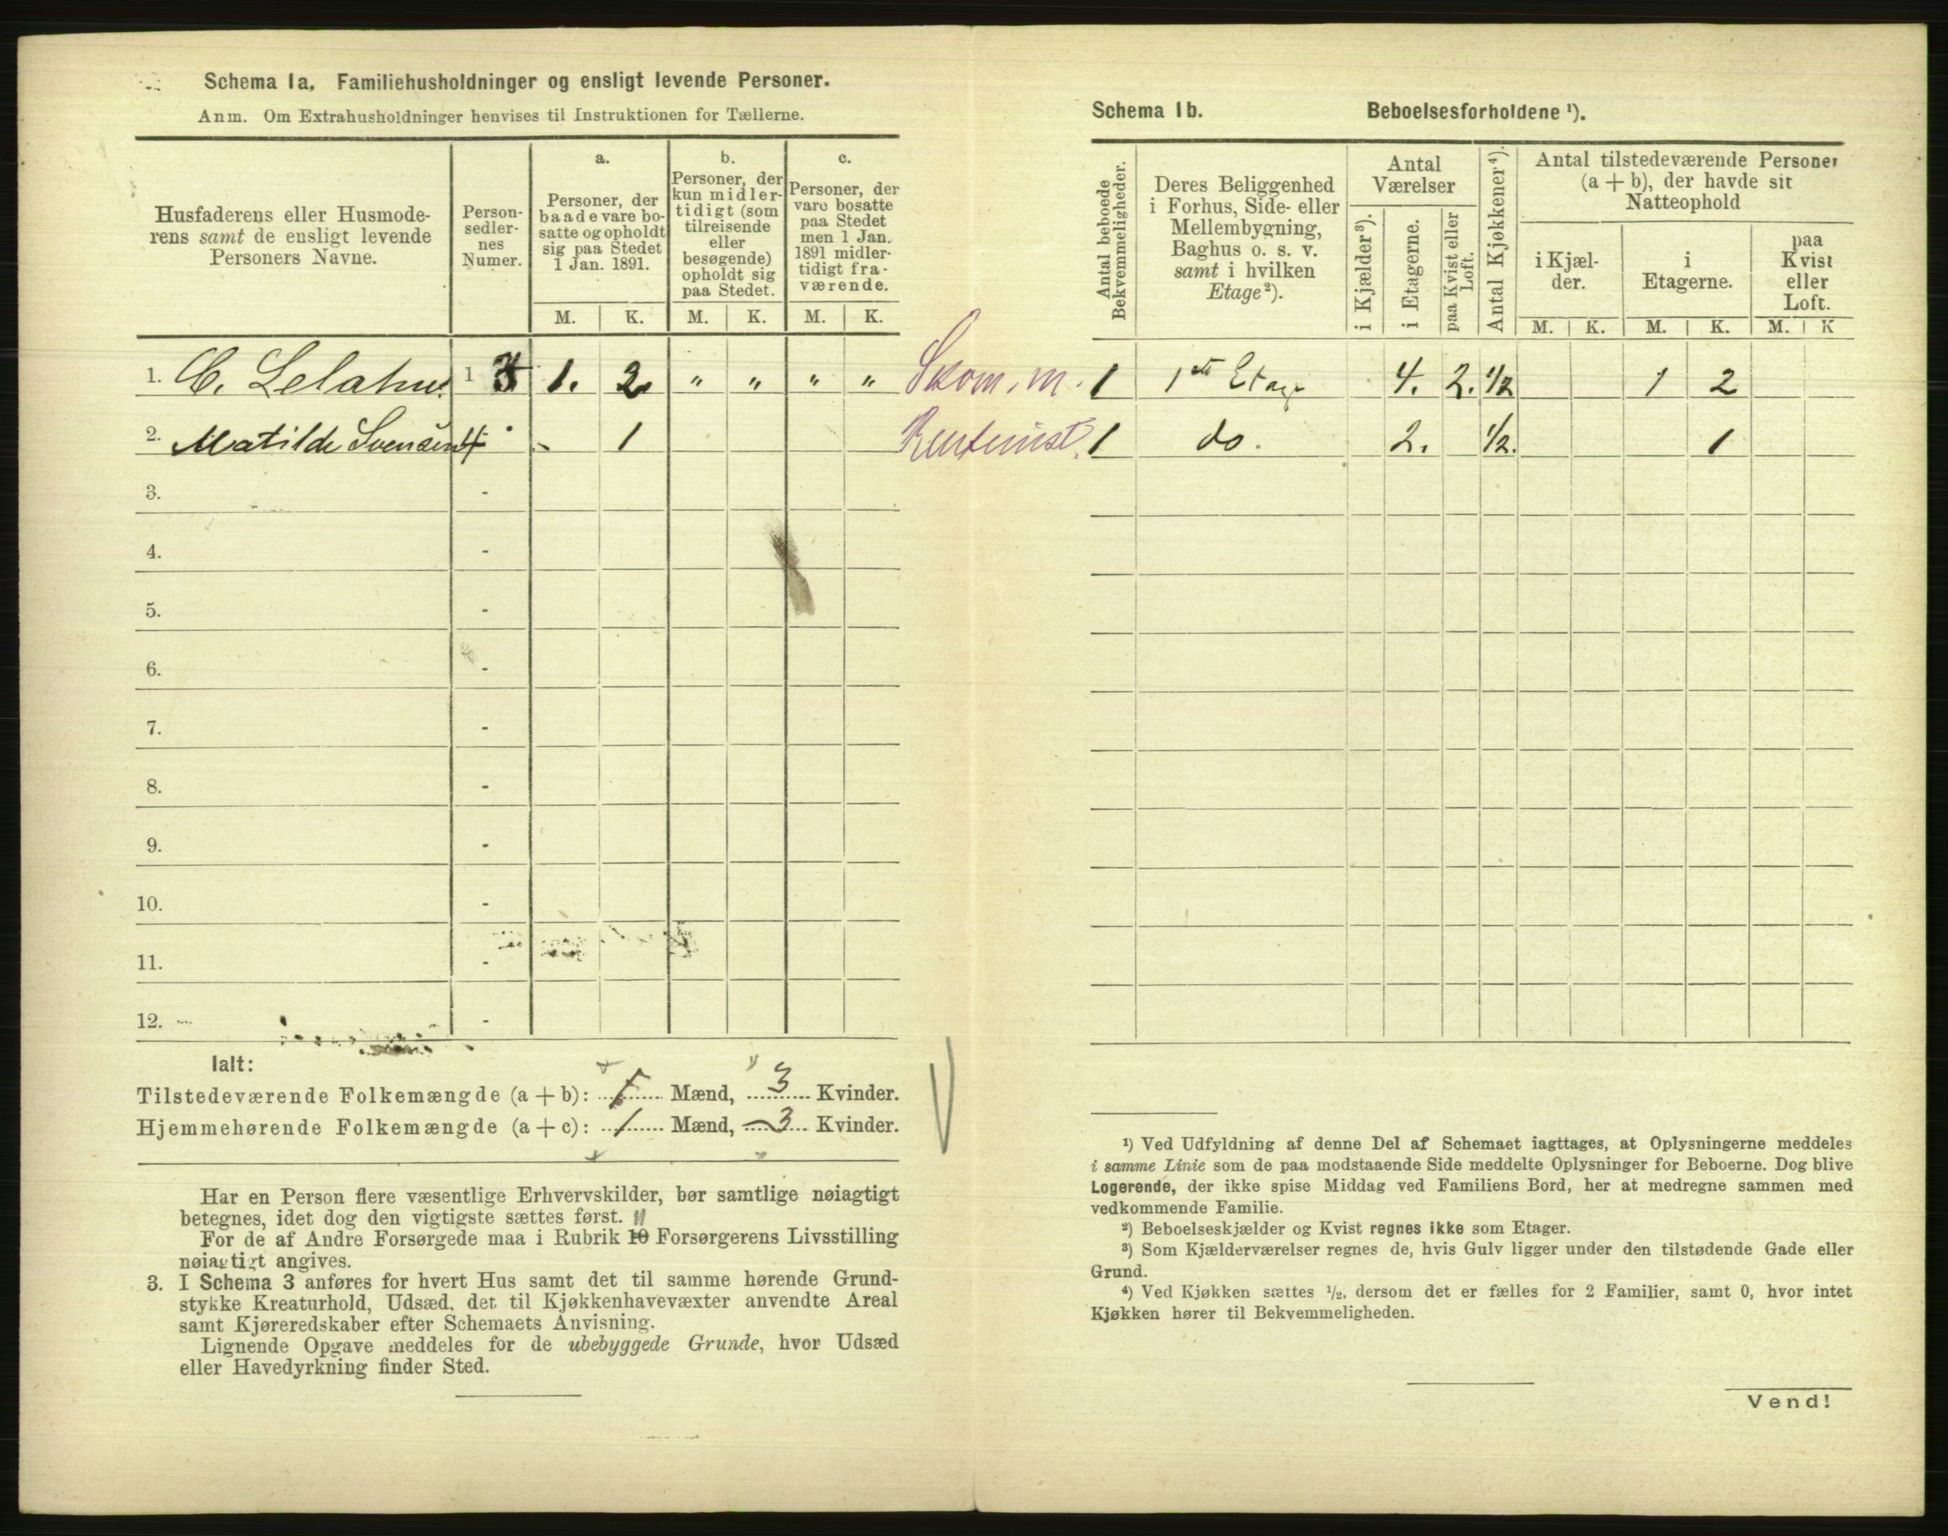 Schema 1a. Familiehusholdninger og ensligt levende Personer.
Anm. Om Extrahusholdninger henvises til Instruktionen for Tællerne.
Husfaderens eller Husmoderens samt de ensligt levende Personers Navne.
Personsedlernes Numer.
a.
Personer, der baade vare bosatte og opholdt sig paa Stedet 1 Jan. 1891.
b.
Personer, der kun midlertidigt (som tilreisende eller besøgende) opholdt sig paa Stedet.
c.
Personer, der vare bosatte paa Stedet men 1 Jan. 1891 midlertidigt fraværende.
M. K. M. K. M. K.
1. C. 1 1. 2 " " " " Skom. m.
2. Matilde Svensen 4 - 1
3. -
4. -
5. -
6. -
7. -
8. -
9. -
10. -
11. -
12. -
Ialt:
Tilstedeværende Folkemængde (a + b): 1 Mænd, 3 Kvinder.
Hjemmehørende Folkemængde (a + c): 1 Mænd, 3 Kvinder.
Har en Person flere væsentlige Erhvervskilder, bør samtlige nøiagtigt
betegnes, idet dog den vigtigste sættes først. 11
For de af Andre Forsørgede maa i Rubrik 10 Forsørgerens Livsstilling
nøiagtigt angives.
3. I Schema 3 anføres for hvert Hus samt det til samme hørende Grund-
stykke Kreaturhold, Udsæd, det til Kjøkkenhavevæxter anvendte Areal
samt Kjøreredskaber efter Schemaets Anvisning.
Lignende Opgave meddeles for de ubebyggede Grunde, hvor Udsæd
eller Havedyrkning finder Sted.
Schema 1b. Beboelsesforholdene ¹).
Antal beboede Bekvemmeligheder.
Deres Beliggenhed i Forhus, Side- eller Mellembygning, Baghus o. s. v. samt i hvilken Etage ²).
Antal Værelser
i Kjælder ³).
i Etagerne.
paa Kvist eller Loft.
Antal Kjøkkener ⁴).
Antal tilstedeværende Personer (a + b), der havde sit Natteophold
i Kjælder.
i Etagerne.
paa Kvist eller Loft.
M. K. M. K. M. K
1 1ste Etage 4. 2. 1/2 1 2
1 do. 2. 1/2. 1
¹) Ved Udfyldning af denne Del af Schemaet iagttages, at Oplysningerne meddeles
i samme Linie som de paa modstaaende Side meddelte Oplysninger for Beboerne. Dog blive
Logerende, der ikke spise Middag ved Familiens Bord, her at medregne sammen med
vedkommende Familie.
²) Beboelseskjælder og Kvist regnes ikke som Etager.
³) Som Kjælderværelser regnes de, hvis Gulv ligger under den tilstødende Gade eller
Grund.
⁴) Ved Kjøkken sættes ½, dersom det er fælles for 2 Familier, samt 0, hvor intet
Kjøkken hører til Bekvemmeligheden.
Vend!